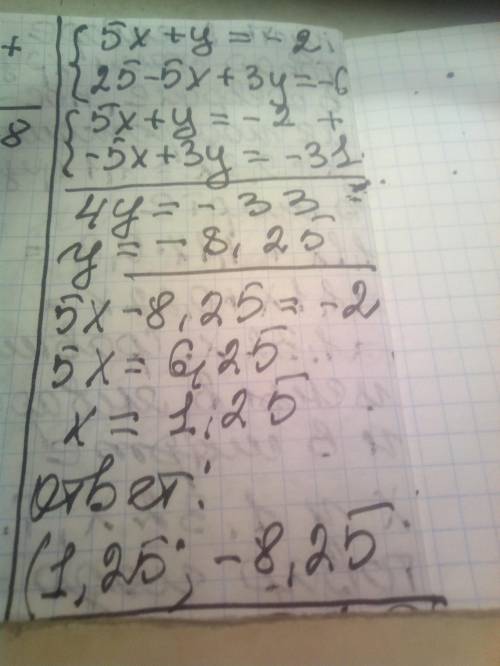 +
8
{ 5x + y = - 2
{ 25 - 5x + 3y = -6
{ 5x + y = - 2 +
{ -5x + 3y = - 31
4y = - 33
y = - 8,25
5x - 8,25 = -2
5x = 6,25
x = 1,25
ответ:
(1,25; -8,25